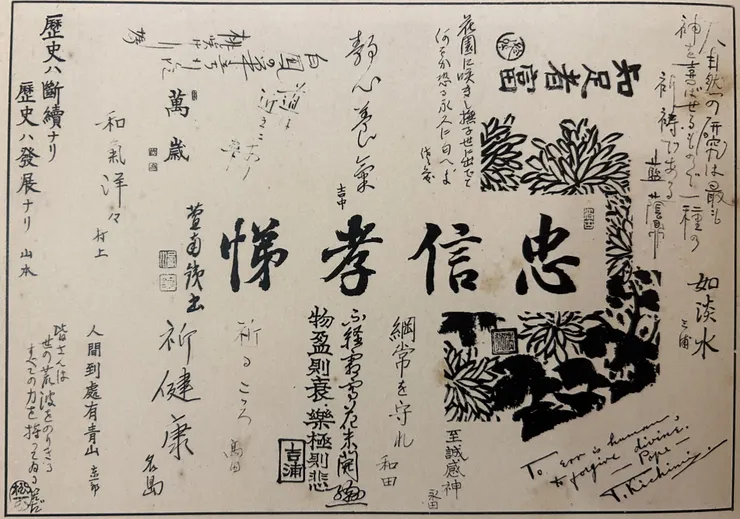 自然の研究は最も
神を喜ばせるものゝ一種の
祈祷である
如淡水
三浦
知足者富
花園に咲きし撫子世に出でて
静心養氣
吉中
忠信孝悌
道は
近きにあり
萬歳
和氣洋々
村上
歴史ハ斷續ナリ
歴史ハ發展ナリ
山本
至誠感神
永田
綱常を守れ
和田
物盈則衰樂極則悲
吉浦
祈るこころ
祈健康
名島
人間到處有青山
皆さんは
世の荒波をのりきる
すべての力を持つてゐる
To err is human,
to forgive divine.
— Pope —
T. Kichimi